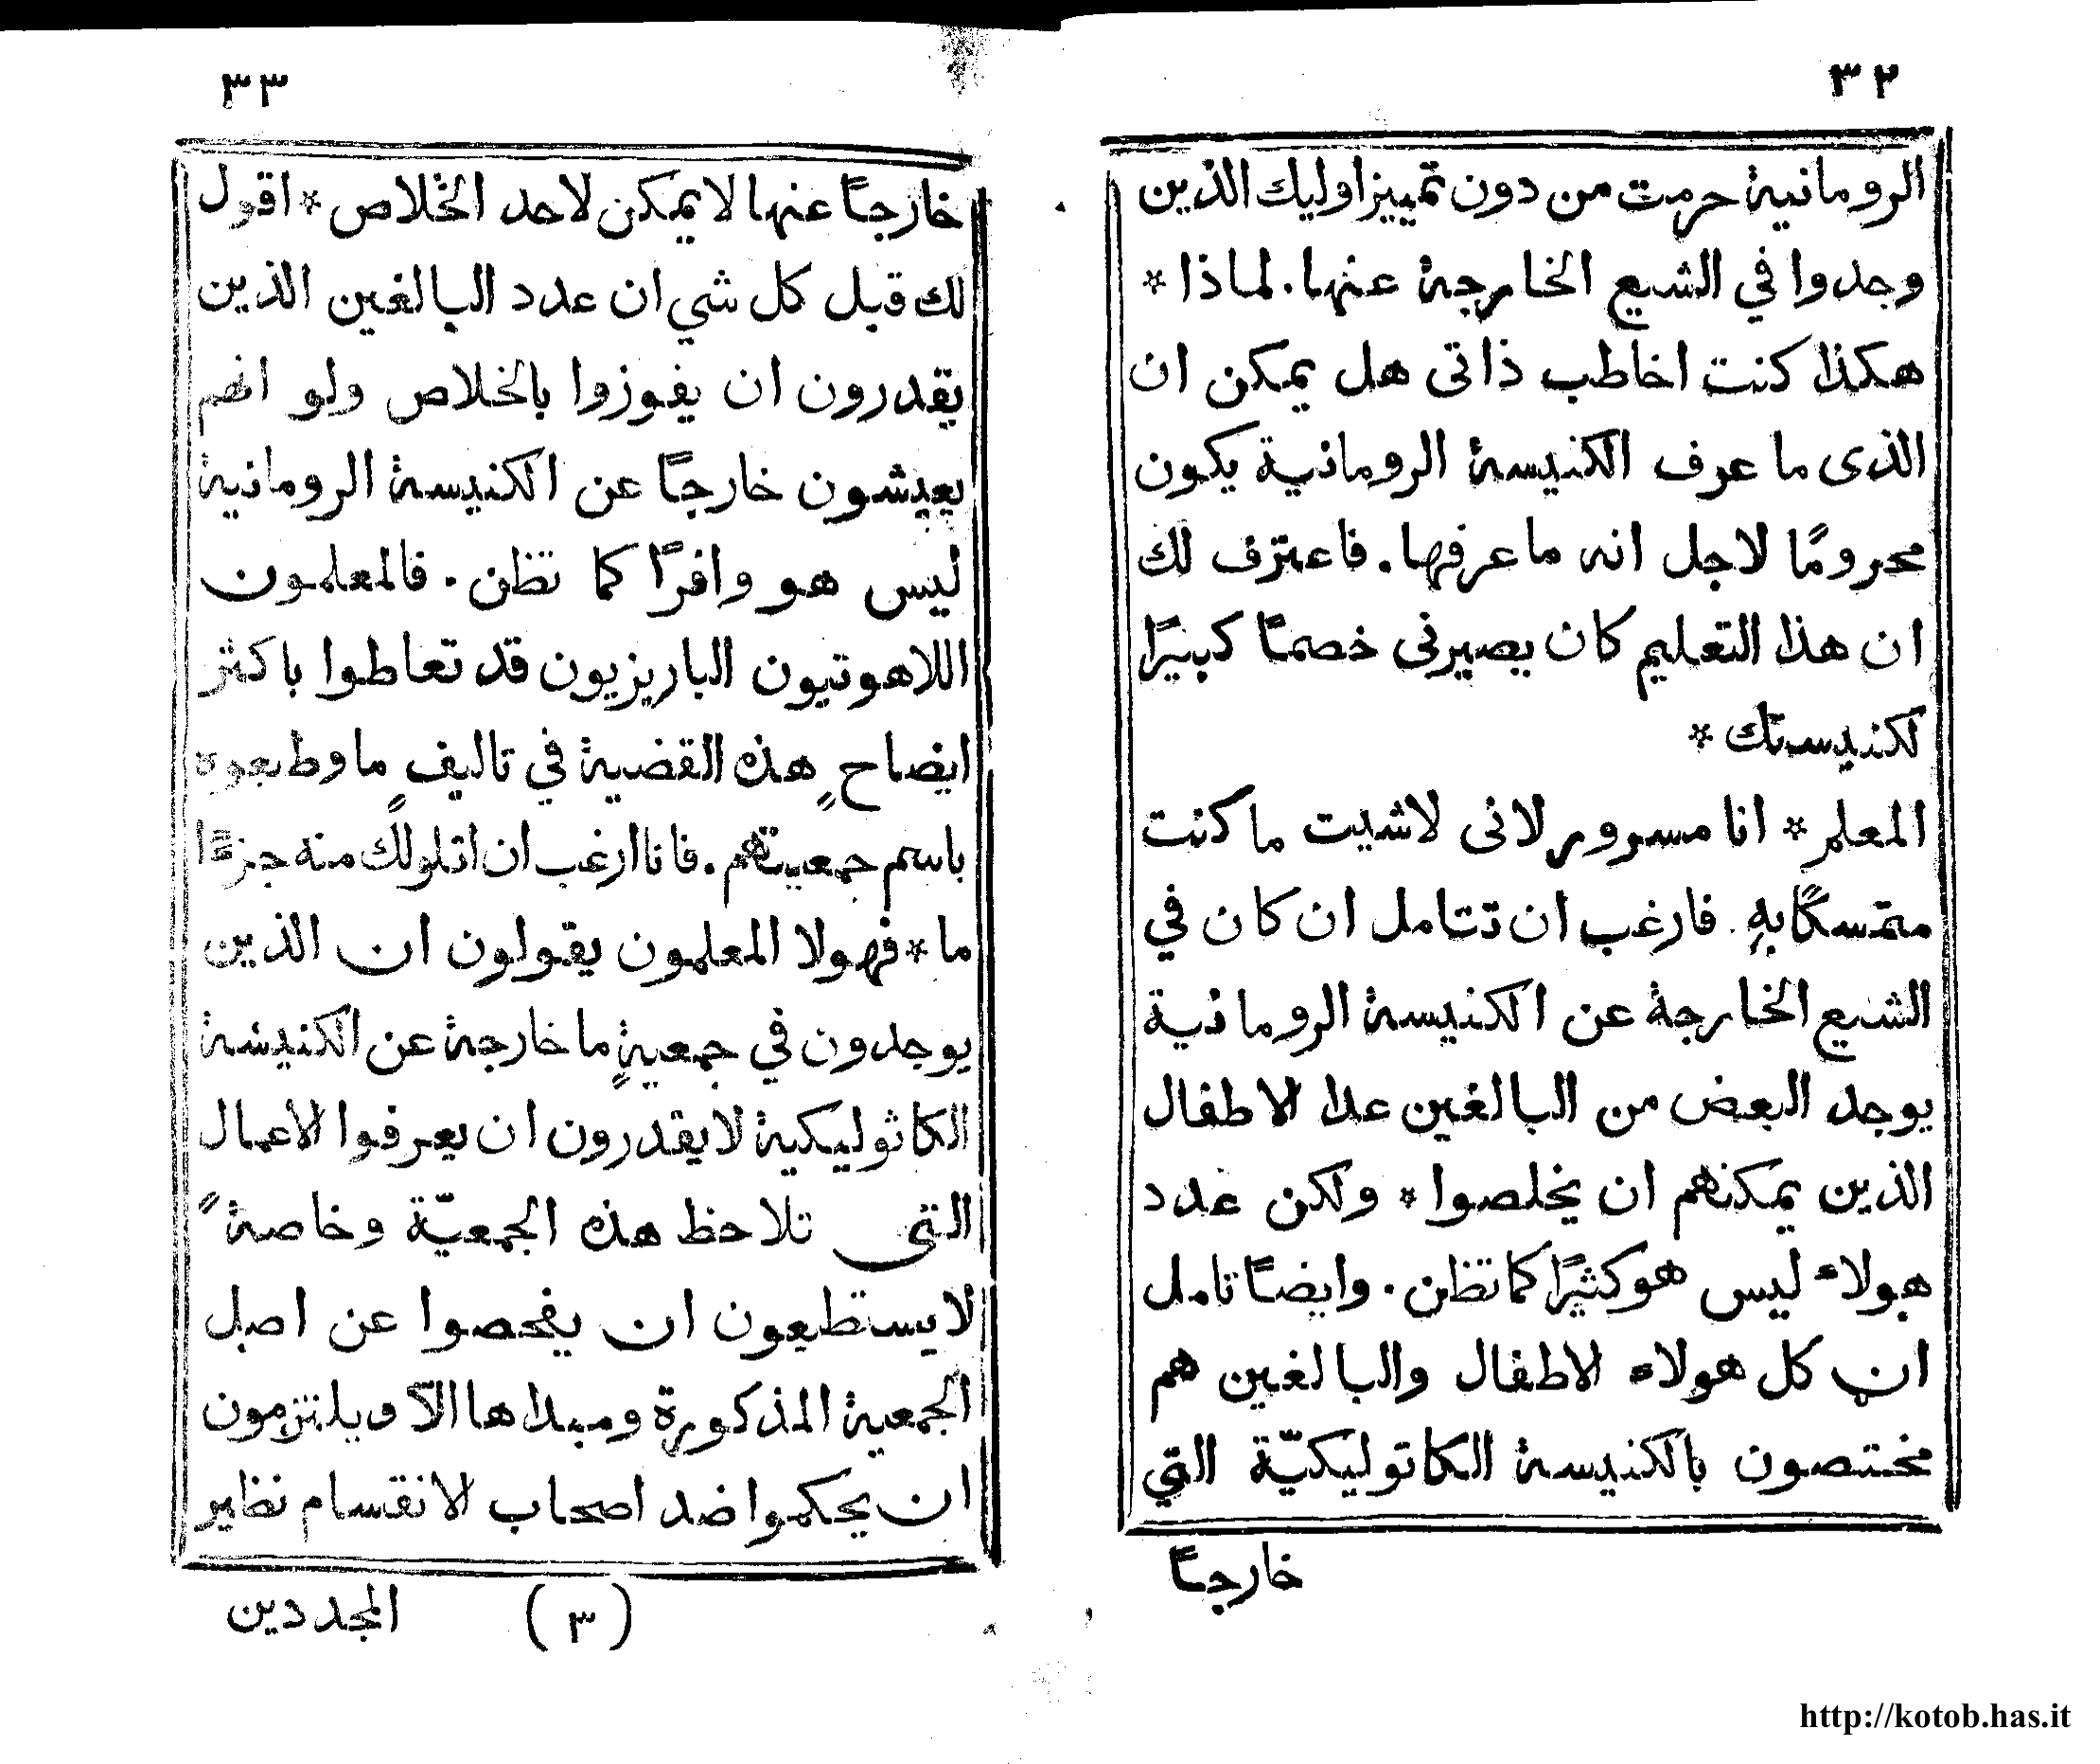 ٣٢
الرومانية حرمت من دون تمييز اوليك الذين
وجدوا في الشيع الخارجة عنها. لماذا *
هكذا كنت اخاطب ذاتى هل يمكن ان
الذى ما عرف الكنيسة الرومانية يكون
محرومًا لاجل انه ما عرفها. فاعترف لك
ان هذا التعليم كان يصيرنى خصمًا كبيرًا
لكنيستك *
المعلم * انا مسرور لانى لاشيت ما كنت
متمسكًا بهِ. فارغب ان تتامل ان كان في
الشيع الخارجة عن الكنيسة الرومانية
يوجد البعض من البالغين عدا الاطفال
الذين يمكنهم ان يخلصوا * ولكن عدد
هولاء ليس هو كثيرًا كما تظن. وايضًا تامل
ان كل هولاء الاطفال والبالغين هم
مختصون بالكنيسة الكاتوليكيّة التي
خارجًا
٣٣
خارجًا عنها لا يمكن لاحد الخلاص * اقول
لك قبل كل شي ان عدد البالغين الذين
يقدرون ان يفوزوا بالخلاص ولو انهم
يعيشون خارجًا عن الكنيسة الرومانية
ليس هو وافرًا كما تظن. فالمعلمون
اللاهوتيون الباريزيون قد تعاطوا باكثر
ايضاحٍ هذه القضية في تاليفٍ ما وطبعوه
باسم جمعيتهم. فانا ارغب ان اتلو لك منه جزءًا
ما * فهولا المعلمون يقولون ان الذين
يوجدون في جمعيةٍ ما خارجة عن الكنيسة
الكاثوليكية لا يقدرون ان يعرفوا الاعمال
التى تلاحظ هذه الجمعيّة وخاصةً
لا يستطيعون ان يفحصوا عن اصل
الجمعية المذكورة ومبداها الّا ويلتزمون
ان يحكموا ضد اصحاب الانقسام نظير
(٣) المجددين
http://kotob.has.it